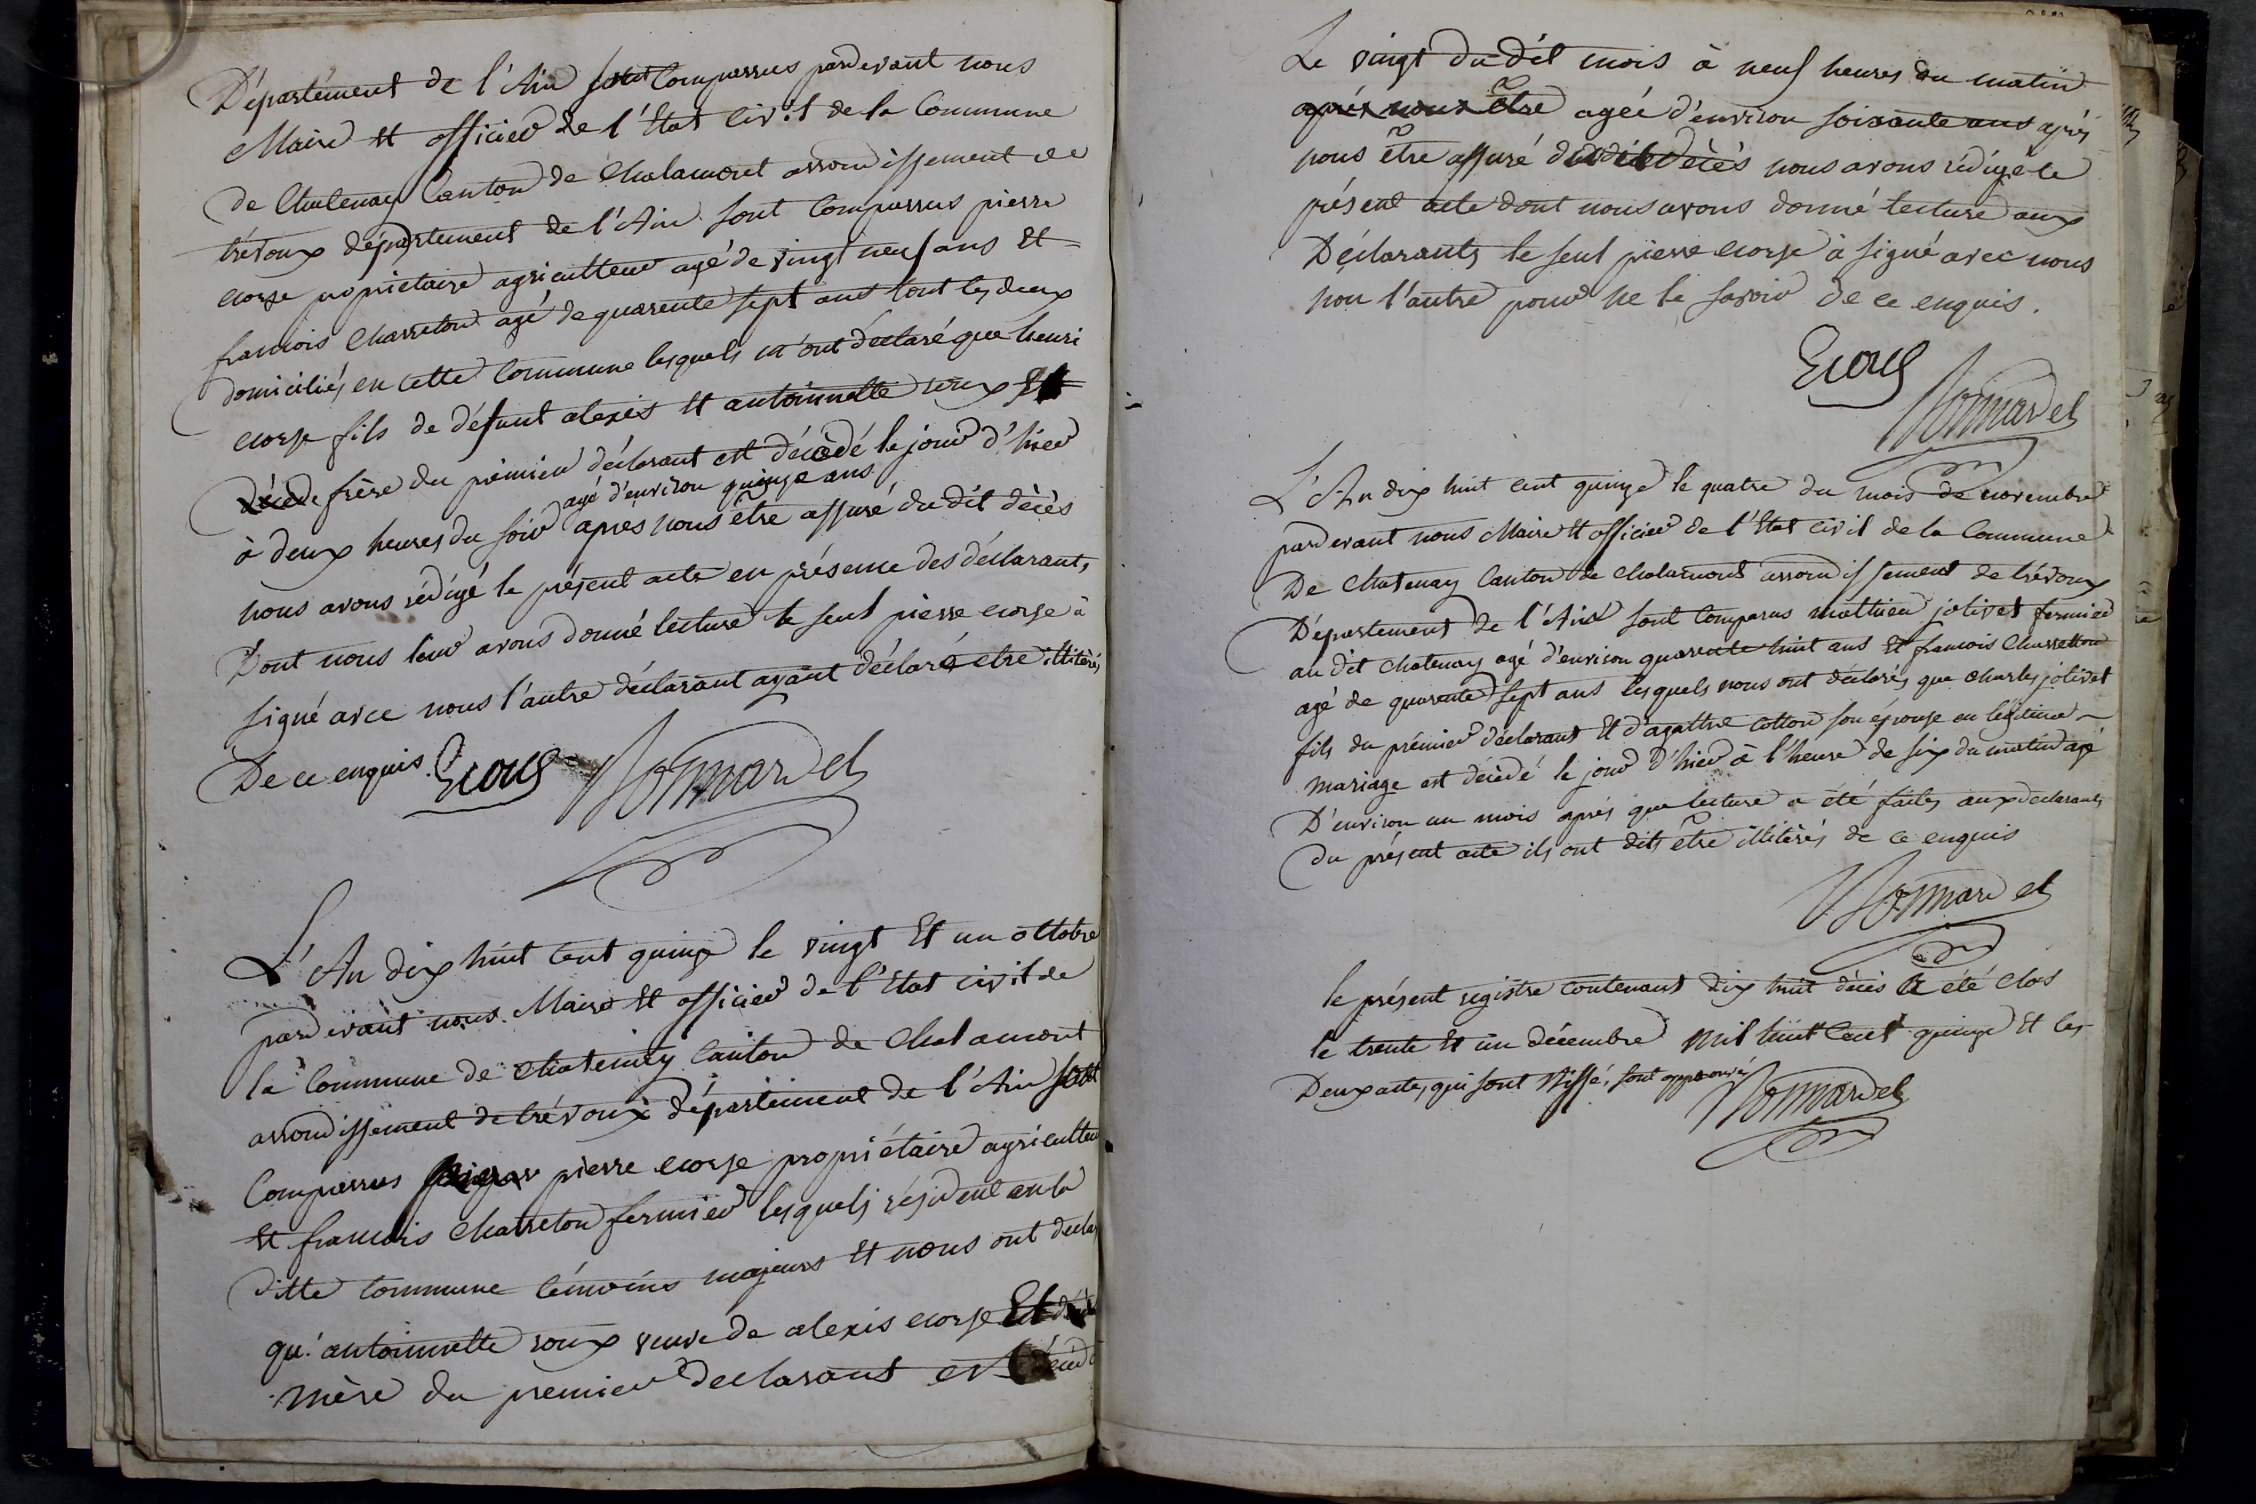 Département de l'Ain sont Comparrus pardevant nous
Maire et officier de l'Etat Civil de la Commune
de Chatenay Canton de Chalamont arrondissement de
trévoux département de l'Ain sont Comparrus pierre
ecorse propriétaire agriculteur agé de vingt neuf ans et
francois Charreton agé de quarente sept ans tout les deux
domiciliés en cette Commune lesquels m'ont déclaré que henri
ecorse fils de défunt alexis et antoinnette roux Et
décéde frère du prémier déclarant est décèdé le jour d'hier
agé d'environ quinze ans
à deux heures du soir après nous être assuré du dit dècès
nous avons rédigé le présent acte en présence des déclarants
Dont nous leur avons donné lecture le seul pierre ecorse à
signé avec nous l'autre déclarant ayant déclaré etre illitèrés
De ce enquis. Ecorse Bonnardel
L'An dix huit cent quinze le vingt Et un octobre
pardevant nous Maire et officier de l'Etat civil de
la Commune de Chatenay Canton de Chalamont
arrondissement de trévoux département de l'Ain sont
Comparrus pierre ecorse propriétaire agriculteu
et francois Charreton fermier lesquels résident en la
ditte Commune témoins majeurs et nous ont decla
qu'antoinnette roux veuve de alexis ecorse Est
mère du premier declarant est décédé
Le vingt du dit mois à neuf heures du matin
après nous être agée d'environ soixante ans après
nous être assuré du dit dècès nous avons rédigé le
présent acte dont nous avons donné lecture aux
Déclarants le seul pierre ecorse à signé avec nous
non l'autre pour ne le savoir de ce enquis.
Ecorse
Bonnardel
L'An dix huit cent quinze le quatre du mois de novembre
pardevant nous Maire et officier de l'Etat civil de la Commune
De Chatenay Canton de Chalamont arrondissement de trévoux
Département de l'Ain sont Comparus mathieu jolivet fermier
au dit Chatenay agé d'environ quarente huit ans et francois Charretton
agé de quarente sept ans lesquels nous ont déclarés que charles jolivet
fils du prémier déclarant et d'agatthe cotton son épouse en légitime
mariage est décèdé le jour d'hier à l'heure de six du matin agé
D'environ un mois après que lecture a été faites aux declarants
du présent acte ils ont dits être illitèrés de ce enquis
Bonnardel
le présent registre contenant dix huit décès a été clos
le trente et un décembre mil huit Cent quinze et les
Deux actes qui sont Biffés sont approuvés
Bonnardel